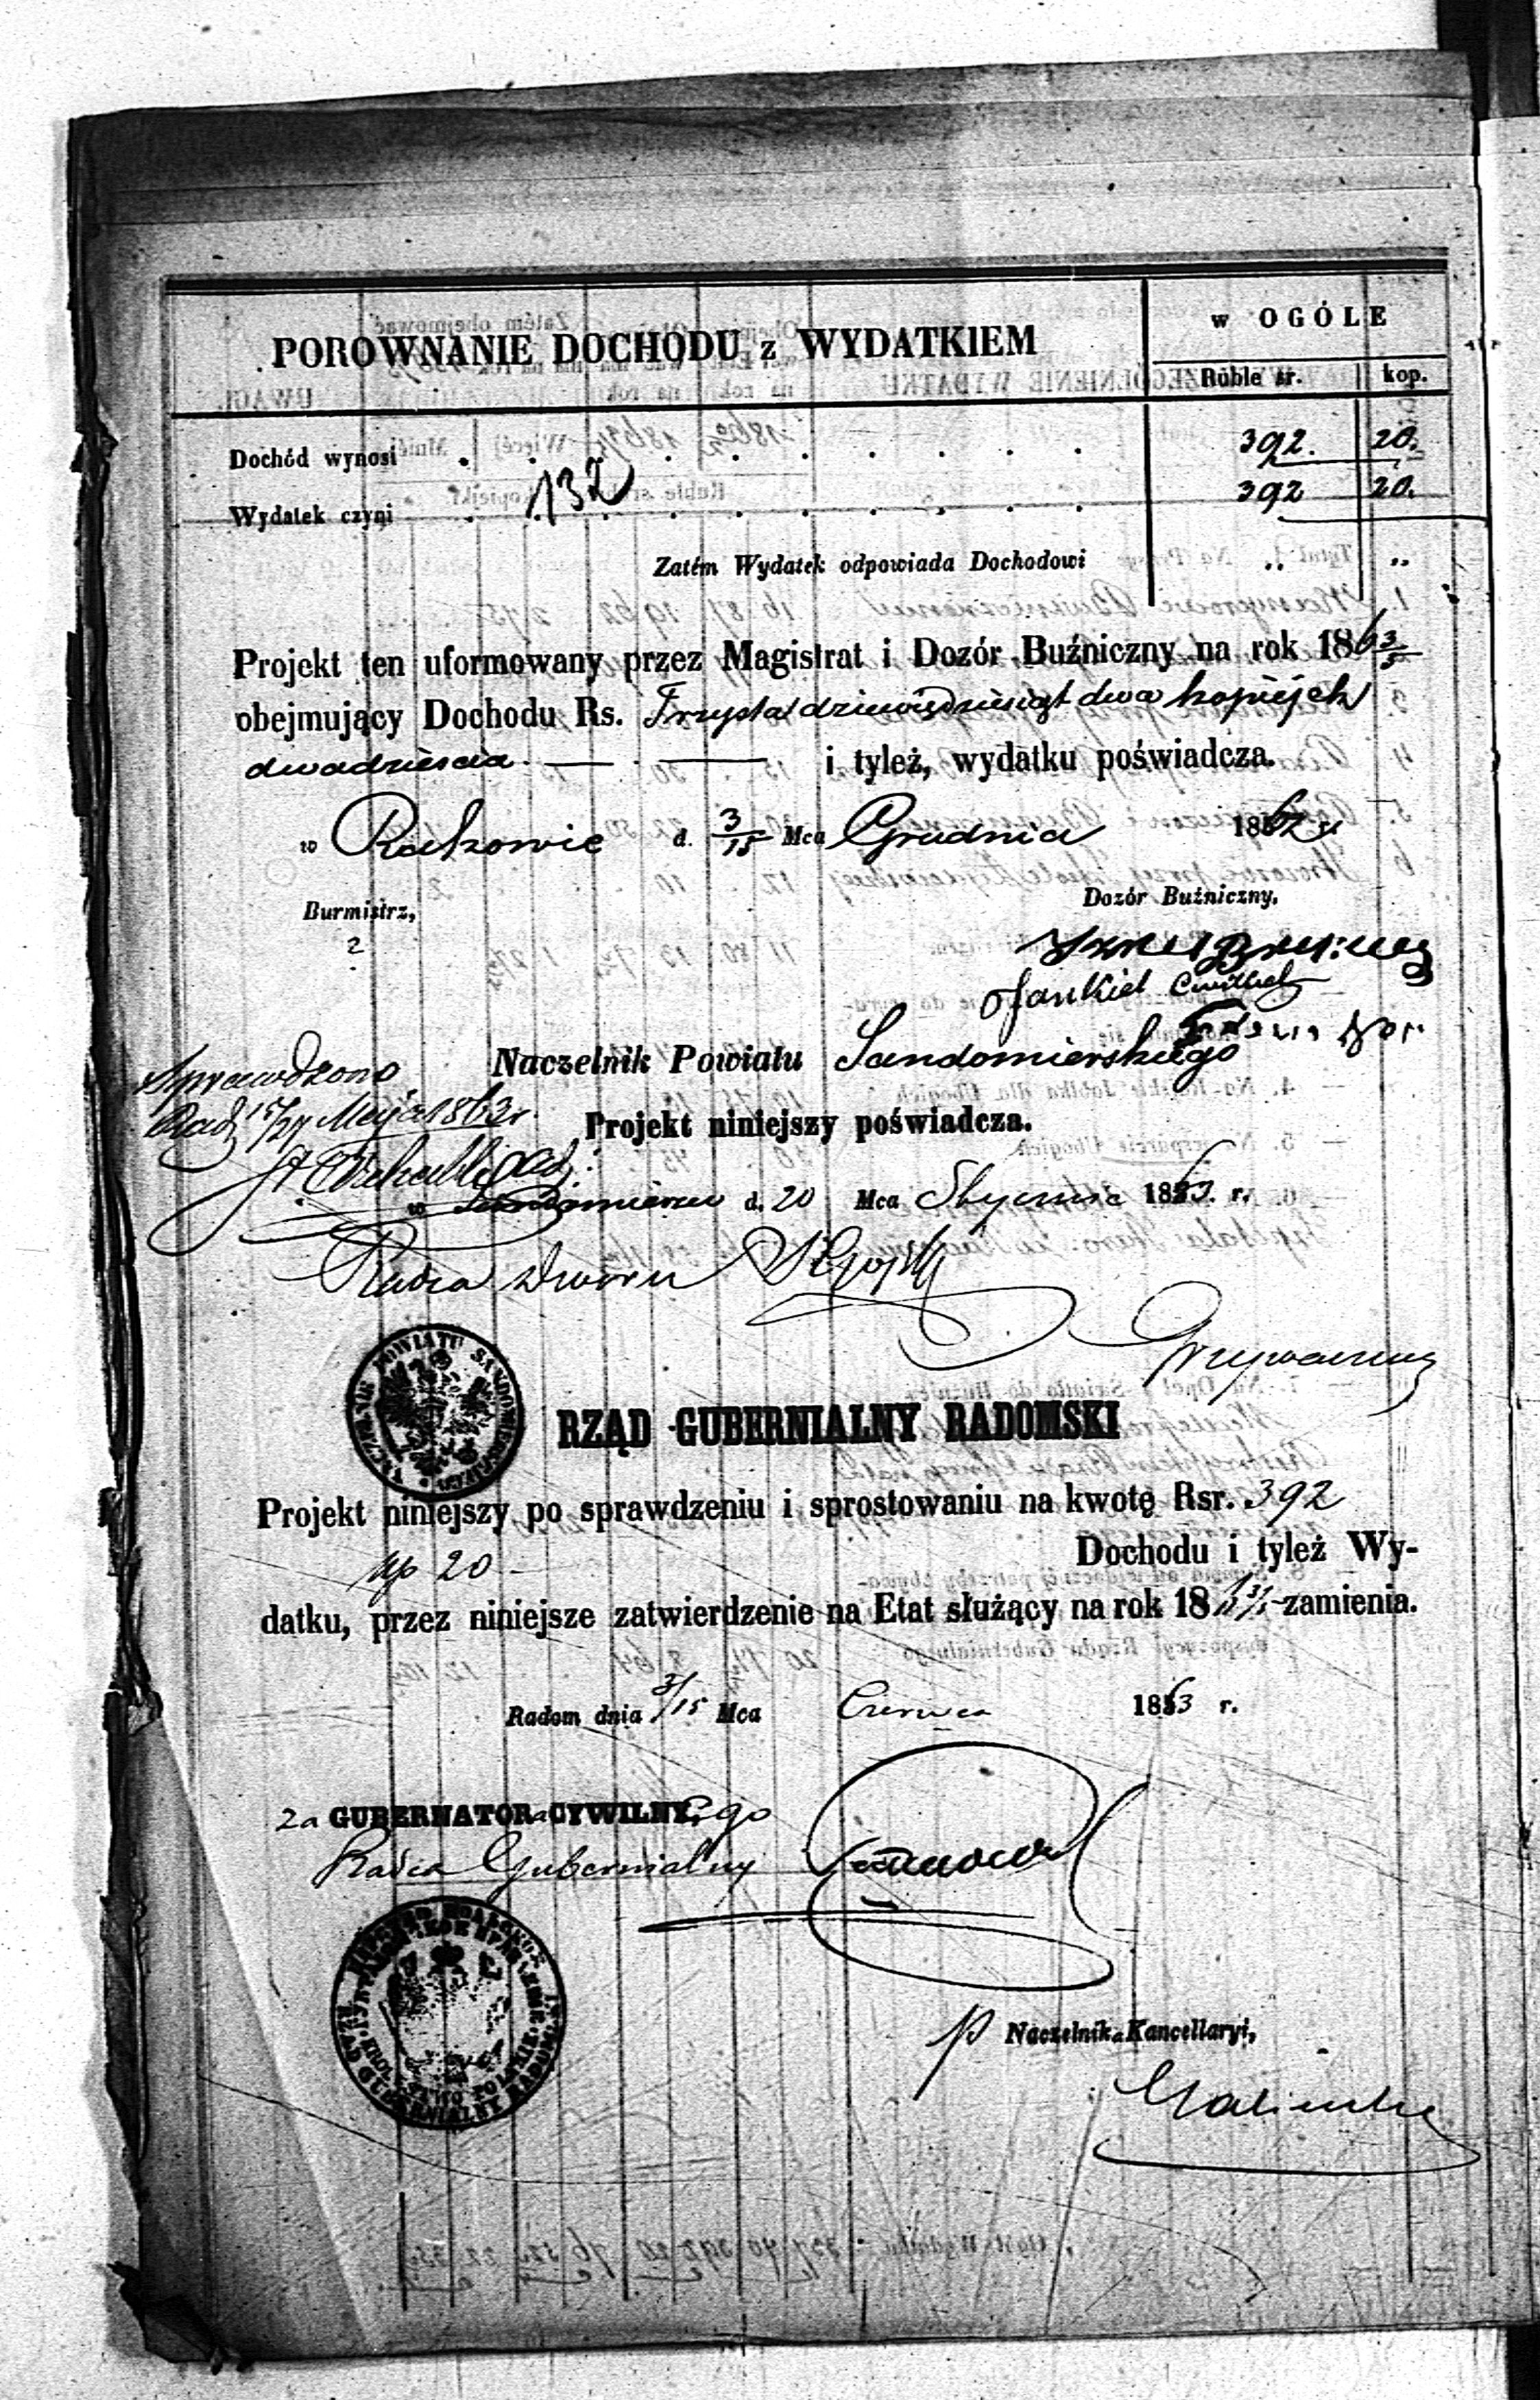 PORÓWNANIE DOCHODU z WYDATKIEM
w OGÓLE
Ruble sr. kop.
Dochód wynosi 392. 20.
137
Wydatek czyni 392 20.
Zatém Wydatek odpowiada Dochodowi „ „
Projekt ten uformowany przez Magistrat i Dozór Buźniczny na rok 186 3/5
obejmujący Dochodu Rs. Trzysta dziewięćdziesiąt dwa kopiejek
dwadzieścia — — i tyleż, wydatku poświadcza.
w Rakowie d. 3/15 Mca Grudnia 1862 r
Burmistrz,
Dozór Buźniczny,
2
Jankiel
Naczelnik Powiatu Sandomierskiego
Sprawdzono
Rad 15/27 Maja 1863 r.
Projekt niniejszy poświadcza.
w Sandomierzu d. 20 Mca Stycznia 1863. r.
Radca Dworu
NACZELNIK POWIATU SANDOMIERSKIEGO
RZĄD GUBERNIALNY RADOMSKI
Projekt niniejszy po sprawdzeniu i sprostowaniu na kwotę Rsr. 392
kp 20 — Dochodu i tyleż Wy-
datku, przez niniejsze zatwierdzenie na Etat służący na rok 18 zamienia.
Radom dnia 3/15 Mca Czerwca 1863 r.
za GUBERNATORA CYWILNEgo
Radca Gubernialny
RZĄD GUBERNIALNY RADOMSKI
p Naczelnika Kancellaryi,